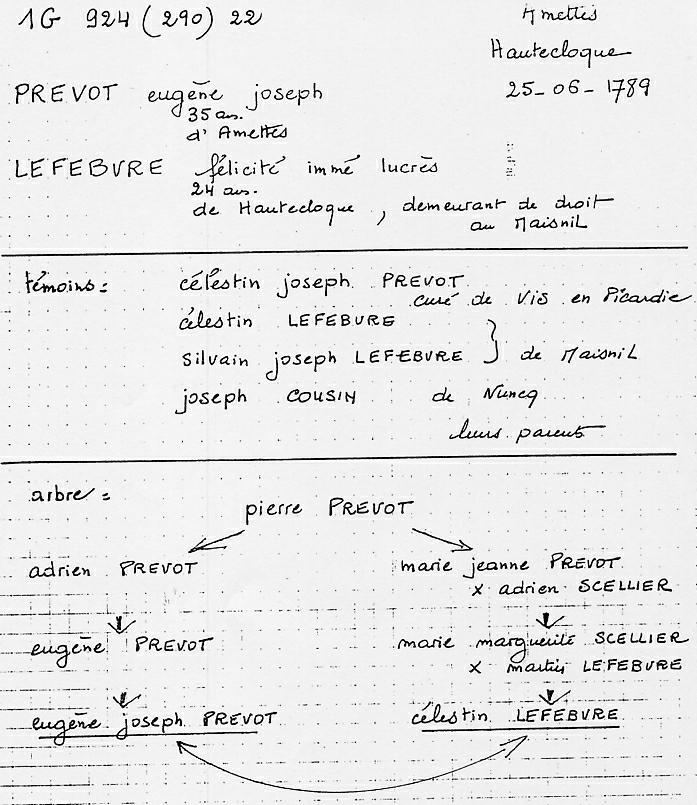 1G 924 (290) 22
Amettes
Hautecloque
25-06-1789
PREVOT eugène joseph
35 ans.
d'Amettes
LEFEBVRE félicité immé lucrès
24 ans.
de Hautecloque, demeurant de droit
au Maisnil
témoins =
célestin joseph PREVOT
curé de Vis en Picardie
célestin LEFEBVRE
silvain joseph LEFEBVRE } de Maisnil
joseph COUSIN de Nuncq
leurs parents
arbre =
pierre PREVOT
adrien PREVOT
marie jeanne PREVOT
x adrien SCELLIER
eugène PREVOT
marie marguerite SCELLIER
x martin LEFEBVRE
eugène joseph PREVOT
célestin LEFEBVRE